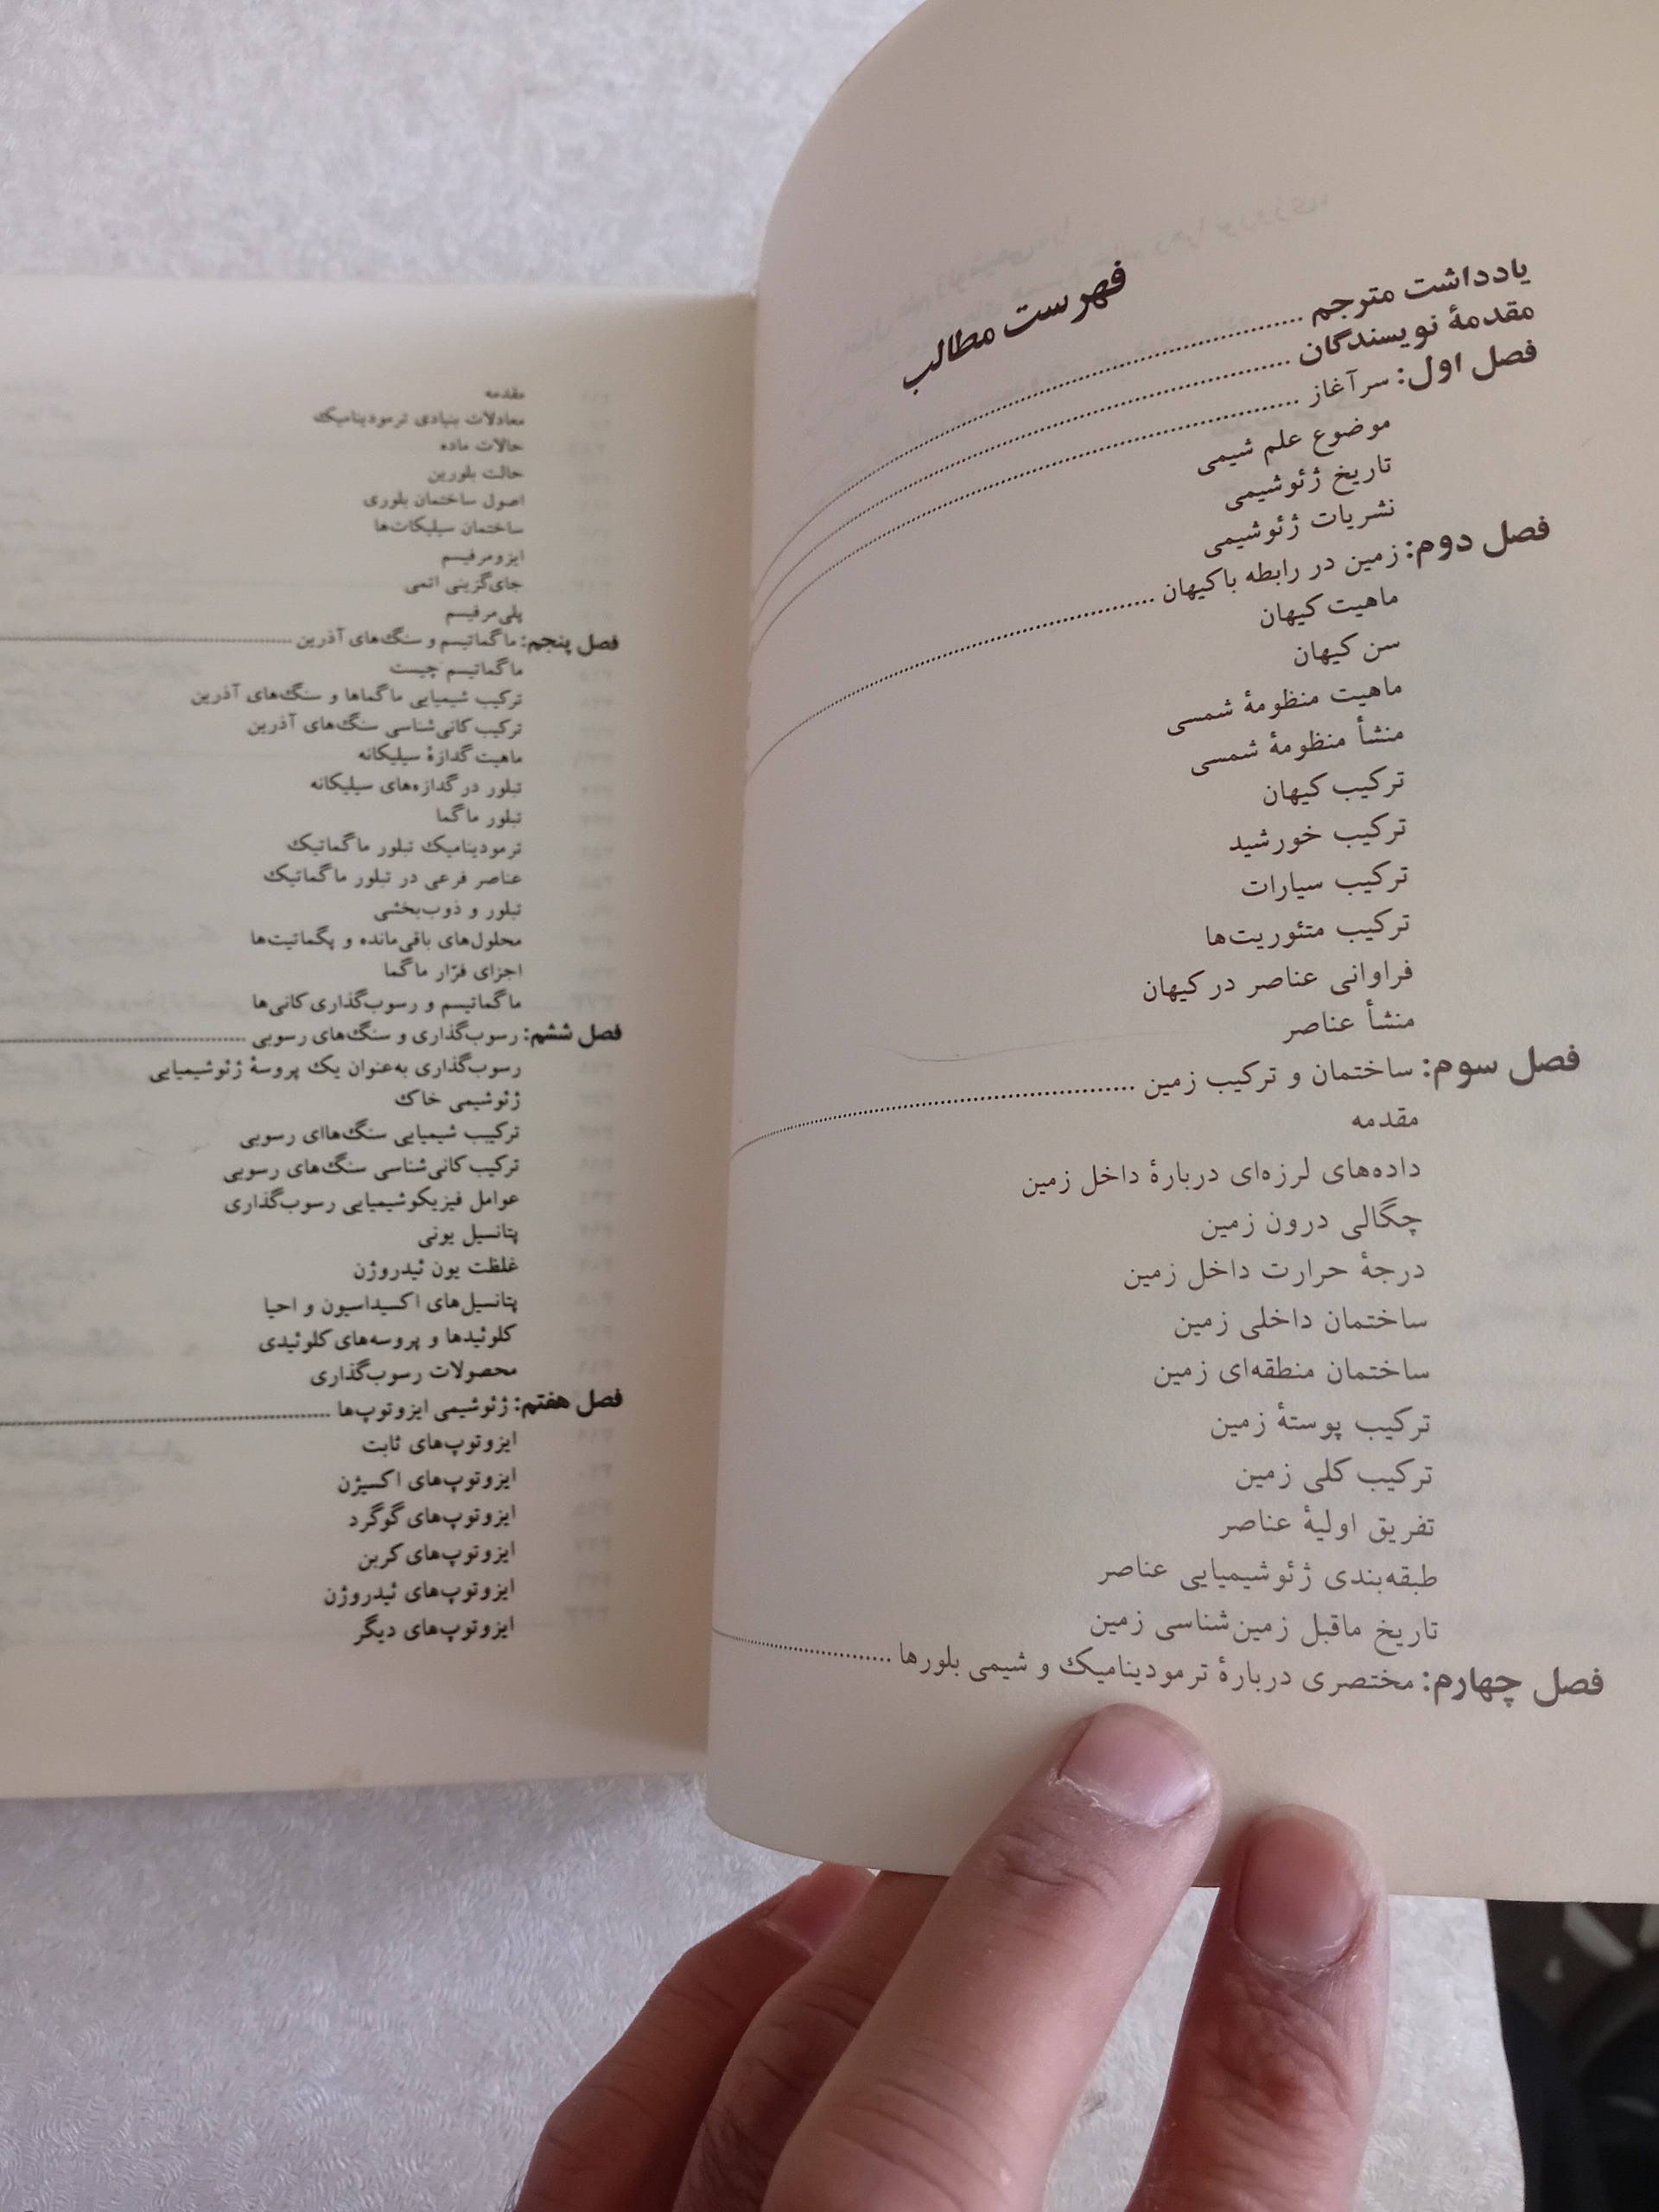 فهرست مطالب
یادداشت مترجم
مقدمهٔ نویسندگان
فصل اول: سرآغاز
موضوع علم شیمی
تاریخ ژئوشیمی
نشریات ژئوشیمی
فصل دوم: زمین در رابطه با کیهان
ماهیت کیهان
سن کیهان
ماهیت منظومهٔ شمسی
منشأ منظومهٔ شمسی
ترکیب کیهان
ترکیب خورشید
ترکیب سیارات
ترکیب متئوریت‌ها
فراوانی عناصر در کیهان
منشأ عناصر
فصل سوم: ساختمان و ترکیب زمین
مقدمه
داده‌های لرزه‌ای دربارهٔ داخل زمین
چگالی درون زمین
درجهٔ حرارت داخل زمین
ساختمان داخلی زمین
ساختمان منطقه‌ای زمین
ترکیب پوستهٔ زمین
ترکیب کلی زمین
تفریق اولیهٔ عناصر
طبقه‌بندی ژئوشیمیایی عناصر
تاریخ ماقبل زمین‌شناسی زمین
فصل چهارم: مختصری دربارهٔ ترمودینامیک و شیمی بلورها
مقدمه
معادلات بنیادی ترمودینامیک
حالات ماده
حالت بلورین
اصول ساختمان بلوری
ساختمان سیلیکات‌ها
ایزومرفیسم
جای‌گزینی اتمی
پلی‌مرفیسم
فصل پنجم: ماگماتیسم و سنگ‌های آذرین
ماگماتیسم چیست
ترکیب شیمیایی ماگماها و سنگ‌های آذرین
ترکیب کانی‌شناسی سنگ‌های آذرین
ماهیت گدازهٔ سیلیکاته
تبلور در گدازه‌های سیلیکاته
تبلور ماگما
ترمودینامیک تبلور ماگماتیک
عناصر فرعی در تبلور ماگماتیک
تبلور و ذوب‌بخشی
محلول‌های باقی‌مانده و پگماتیت‌ها
اجزای فرّار ماگما
ماگماتیسم و رسوب‌گذاری کانی‌ها
فصل ششم: رسوب‌گذاری و سنگ‌های رسوبی
رسوب‌گذاری به‌عنوان یک پروسهٔ ژئوشیمیایی
ژئوشیمی خاک
ترکیب شیمیایی سنگ‌هاای رسوبی
ترکیب کانی‌شناسی سنگ‌های رسوبی
عوامل فیزیکوشیمیایی رسوب‌گذاری
پتانسیل یونی
غلظت یون ئیدروژن
پتانسیل‌های اکسیداسیون و احیا
کلوئیدها و پروسه‌های کلوئیدی
محصولات رسوب‌گذاری
فصل هفتم: ژئوشیمی ایزوتوپ‌ها
ایزوتوپ‌های ثابت
ایزوتوپ‌های اکسیژن
ایزوتوپ‌های گوگرد
ایزوتوپ‌های کربن
ایزوتوپ‌های ئیدروژن
ایزوتوپ‌های دیگر